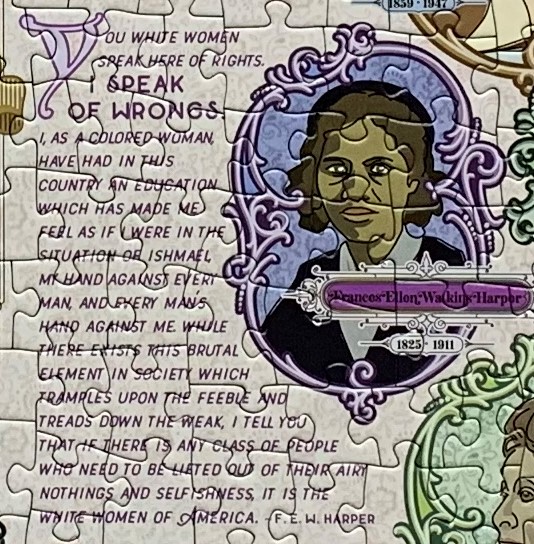 1859 • 1947
YOU WHITE WOMEN
SPEAK HERE OF RIGHTS.
I SPEAK
OF WRONGS.
I, AS A COLORED WOMAN,
HAVE HAD IN THIS
COUNTRY AN EDUCATION
WHICH HAS MADE ME
FEEL AS IF I WERE IN THE
SITUATION OF ISHMAEL,
MY HAND AGAINST EVERY
MAN, AND EVERY MAN'S
HAND AGAINST ME. WHILE
THERE EXISTS THIS BRUTAL
ELEMENT IN SOCIETY WHICH
TRAMPLES UPON THE FEEBLE AND
TREADS DOWN THE WEAK, I TELL YOU
THAT IF THERE IS ANY CLASS OF PEOPLE
WHO NEED TO BE LIFTED OUT OF THEIR AIRY
NOTHINGS AND SELFISHNESS, IT IS THE
WHITE WOMEN OF AMERICA. -F. E. W. HARPER
Frances Ellen Watkins Harper
1825 • 1911